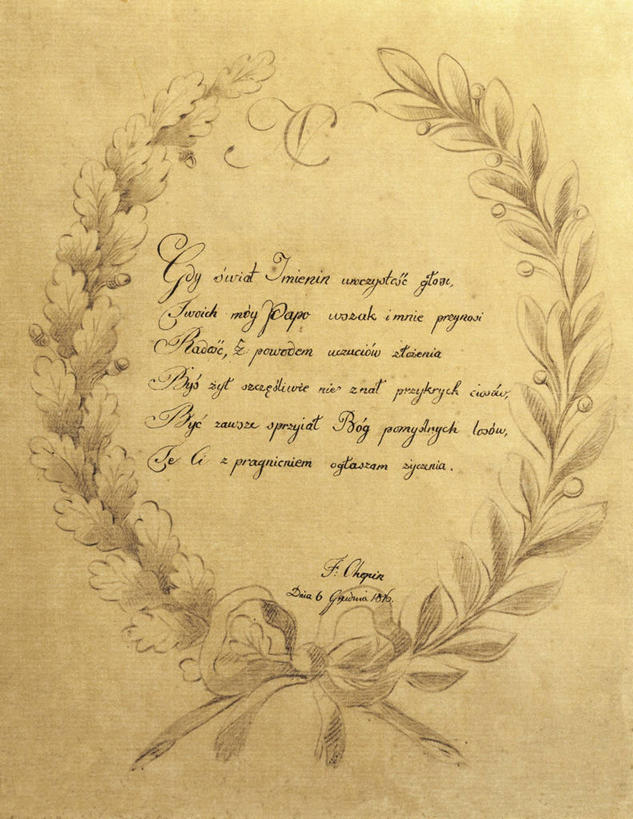 Gdy świat Imienin uroczystość głosi,
Twoich móy Papo wszak i mnie przynosi
Radość, Z powodem uczuciów złożenia
Byś żył szczęśliwie nie znał przykrych ciosów,
Być zawsze sprzyiał Bóg pomyślnych losów,
Te Ci z pragnieniem ogłaszam życzenia.
F: Chopin
Dnia 6 Grudnia 1816.